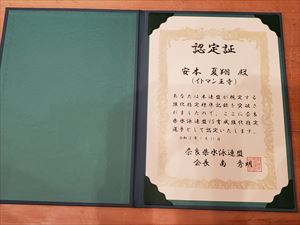 認定証
安本 夏翔 殿
(イトマン王寺)
あなたは本連盟が規定する
強化指定標準記録を突破さ
れましたので、ここに奈良
県水泳連盟 育成強化指定
選手として認定いたします。
奈良県水泳連盟
会長 南 秀明